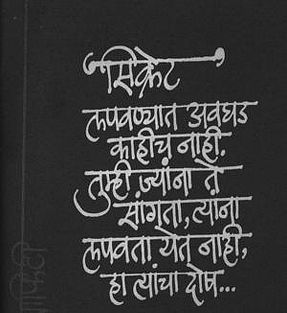 सिक्रेट
लपवण्यात अवघड
काहीच नाही.
तुम्ही ज्यांना ते
सांगता, त्यांना
लपवता येत नाही,
हा त्यांचा दोष...
ग्राफिटी